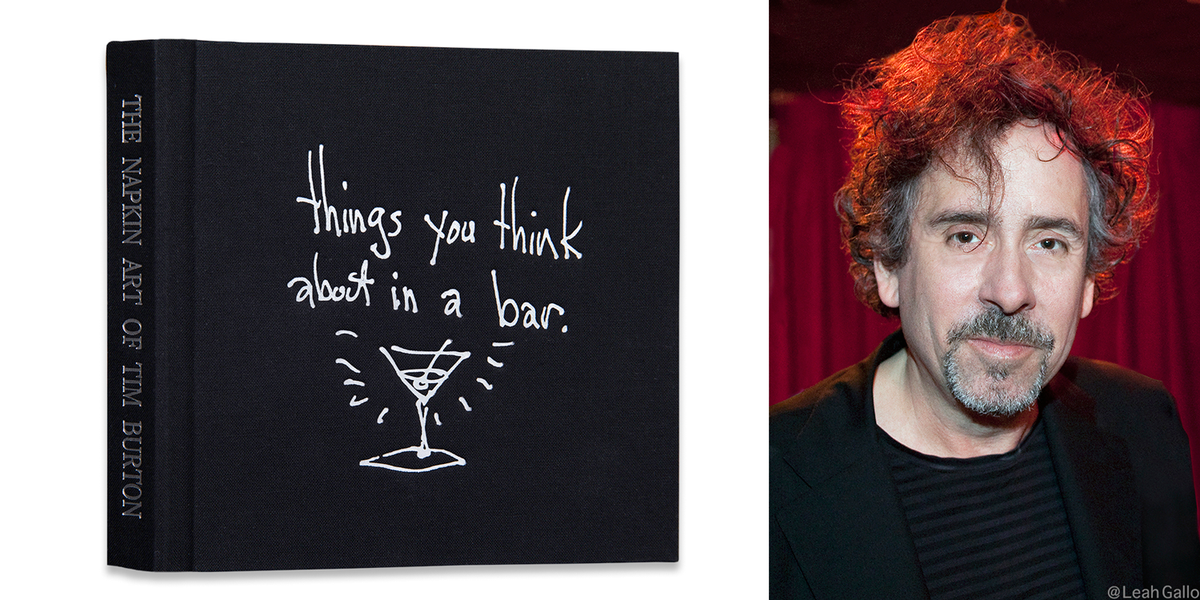 THE NAPKIN ART OF TIM BURTON
things you think
about in a bar.
@Leah Gallo